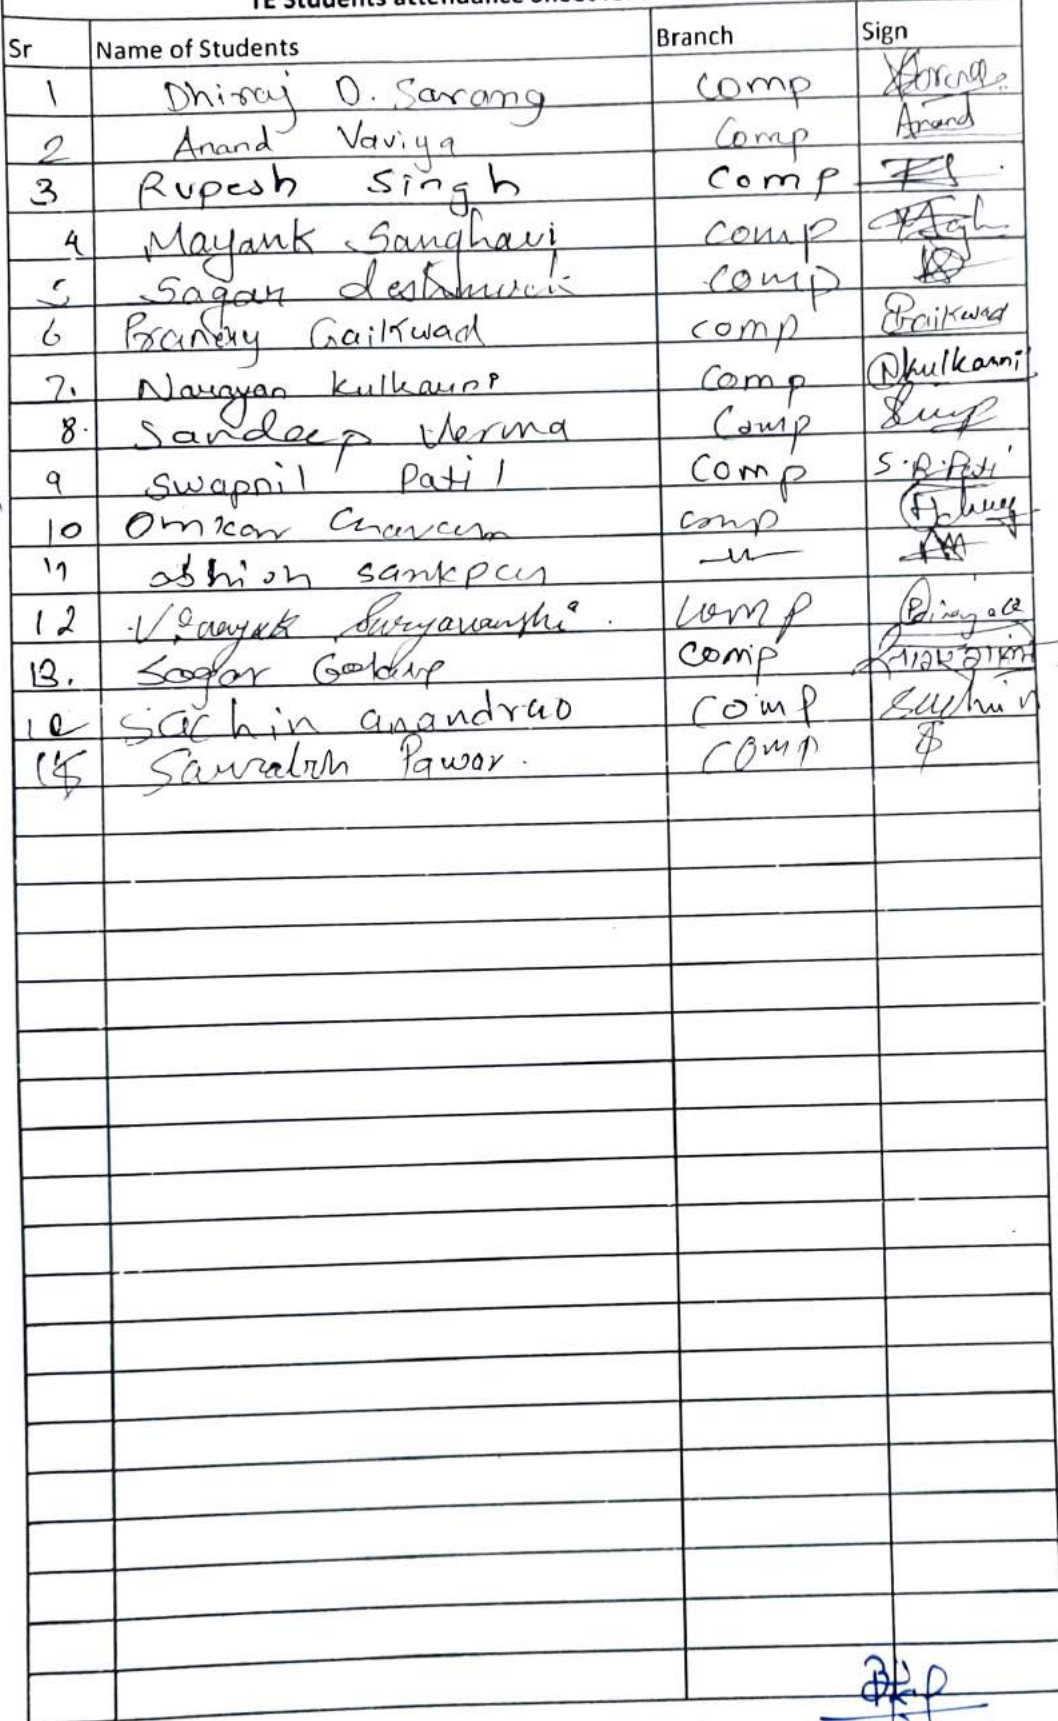 TE Students attendance Sheet
Sr Name of Students Branch Sign
1 Dhiraj D. Sarang comp
2 Anand Vaviya Comp Anand
3 Rupesh Singh Comp
4 Mayank Sanghavi comp
5 Sagar deshmukh comp
6 Gaikwad comp Gaikwad
7. Narayan Kulkarni Comp Nkulkarni
8. Sandeep Verma Comp
9 Swapnil Patil Comp S.R.Pati
10 Omkar Chavan comp
11 sankpal —״—
12 Vinayak Suryavanshi comp
13. Sagar comp
Sachin anandrao comp Sachin
Saurabh Pawar. comp